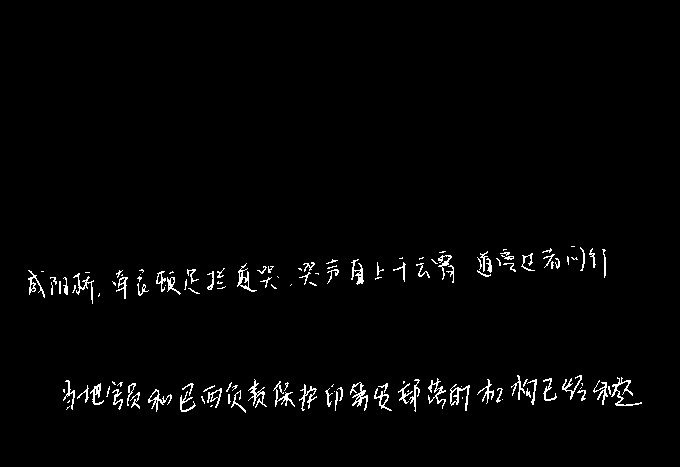 咸阳桥,牵衣顿足拦道哭,哭声直上干云霄 道旁过者问行
当地官员和巴西负责保护印第安部落的机构已经和